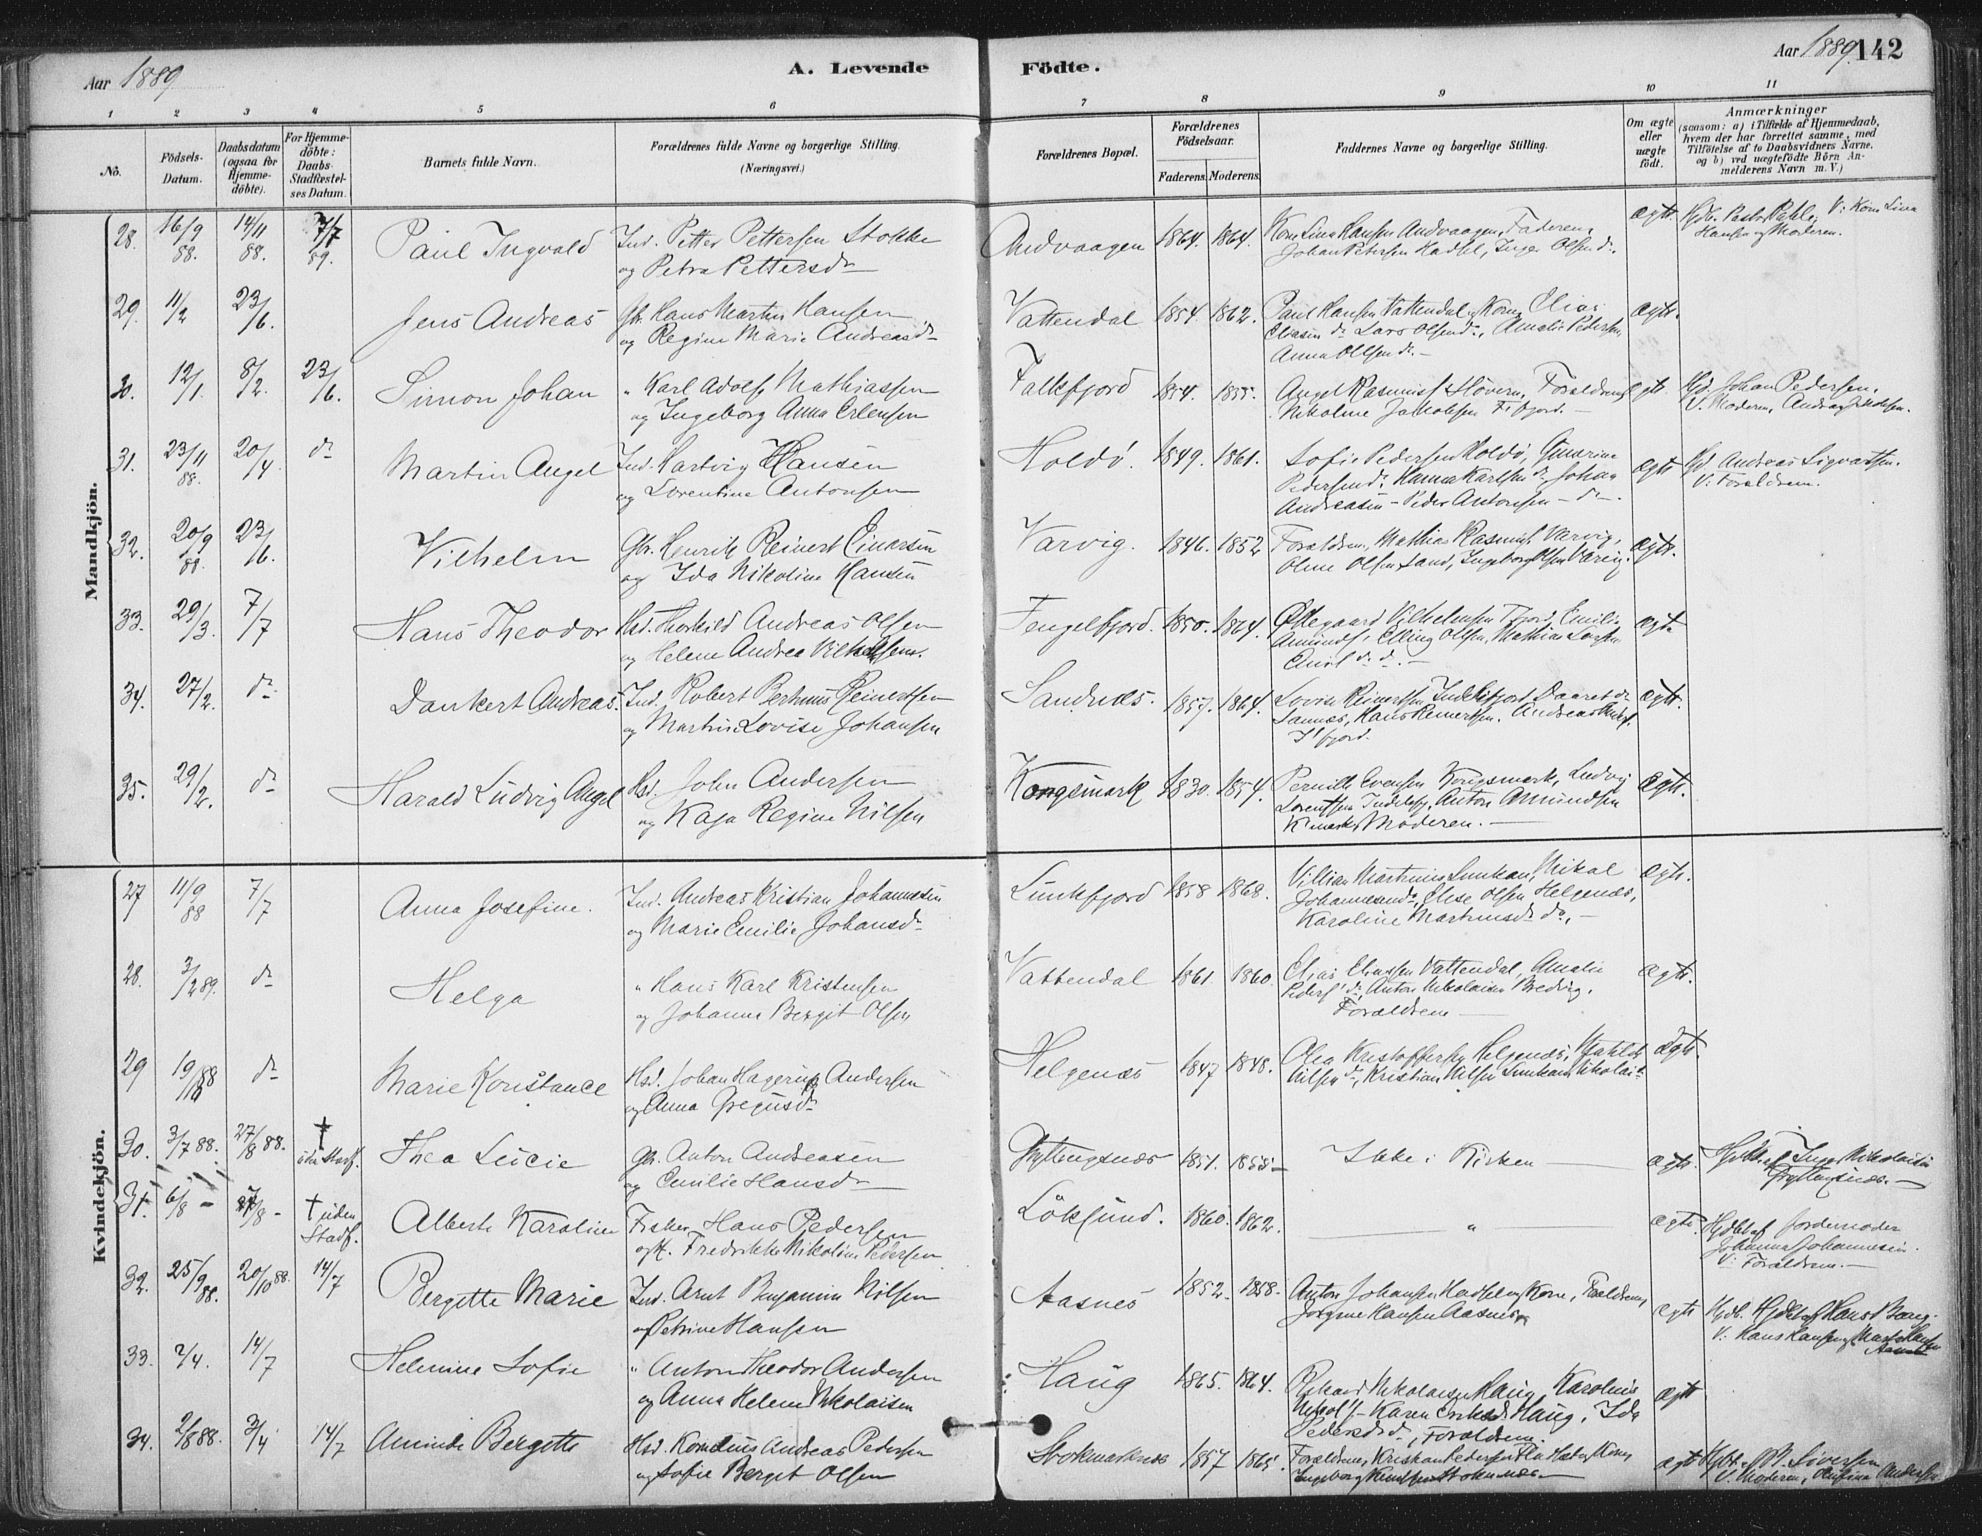 Aar 1889
A. Levende
Födte.
Aar 1889. 142
1 2 3 4 5 6 7 8 9 10 11
No.
Födsels-Datum.
Daabsdatum (ogsaa for Hjemme-döbte).
For Hjemme-döbte: Daabs-Stadfæstel-ses Datum.
Barnets fulde Navn.
Forældrenes fulde Navne og borgerlige Stilling. (Næringsvei.)
Forældrenes Bopæl.
Forældrenes Födselsaar.
Faderens. Moderens.
Faddernes Navne og borgerlige Stilling.
Om ægte eller uægte födt.
Anmærkninger
(saasom: a) i Tilfælde af Hjemmedaab,
hvem der har forrettet samme, med
Tilföielse af to Daabsvidners Navne,
og b) ved uægtefödte Börn An-
melderens Navn m. V.)
Mandkjön.
28. 16/9 88. 14/11 88. 7/7 89. Paul Ingvald
Ind. Petter Pettersen Stokke
og Petra Pettersdr
Andvaagen 1864. 1864.
Kone Lina Hansen Andvaagen, Faderen,
Johan Petersen Hadsel, Inger Olsen do.
ægte.
Hjdb. Pastor V: Kone Lina
Hansen og Moderen.
29. 11/2 23/6. Jens Andreas
Gbr. Hans Martin Hansen
og Regine Marie Andreasdr
Vattendal 1854. 1862.
Paul Hansen Vattendal og Kone, Elias
Eliasen do Lars Olsen do, Amalie Pedersen,
Anna Olsen do. —
ægte.
30. 12/1. 8/2. 23/6. Simon Johan
" Karl Adolf Mathiassen
og Ingeborg Anna Erlensen
Falkfjord 1854. 1855.
Angel Rasmus Forældrene
Nikoline Jakobsen F.fjord. —
ægte.
Hjd. Johan Pedersen.
V. Moderen, Andrea Jakobsen.
31. 23/11 88. 20/4. do Martin Angel
Ind. Hartvig Hansen
og Lorentine Antonsen
Holdö. 1849. 1861.
Sofie Pedersen Holdö,
Pedersen do, Hanna Karlsen do, Johan
Andreasen — Peder Antonsen — do —.
ægte
Hjd. Andreas Sigvartsen.
V: Forældrene.
32. 20/9 88 23/6. Vilhelm
Gbr. Henrik Reinert Einarsen
og Ida Nikoline Hansen
Varvig. 1846. 1852
Forældrene, Mathias Rasmus. Varvig,
Oline Olsen Sand, Ingeborg Olsen Varvig.
ægte.
33. 29/3. 7/7 Hans Theodor
Hsd. Thorkild Andreas Olsen
og Helene Andrea Vilhelmsen.
Fengelfjord. 1850. 1864.
Ödegaard Vilhelmsen Emilie
Elling Olsen, Mathias
Emil do do. —
ægte
34. 27/2. do. Dankert Andreas.
Ind. Robert Reinertsen
og Lovise Johansen
Sandnæs. 1857. 1864.
Lovise Reinertsen do
Sannæs, Hans Reinertsen. Andreas
fjord.
ægte.
35. 29/2. do Harald Ludvig Angel
Hsd. John Andersen
og Kaja Regine Nilsen
Kongsmark 1830. 1854.
Pernille Evensen Kongsmark, Ludvig
Lorentsen Anton Amundsen
Moderen. —
ægte.
Kvindekjön.
27 11/9 88 7/7 Anna Josefine.
Ind. Andreas Kristian Johannessen
og Marie Emilie Johansdr
Lunkfjord 1858 1868.
Villian Martinus Mikal
Johannesen do, Elise Olsen Helgenæs,
Karoline do, —
ægte.
28. 3/2 89. do Helga
" Hans Karl Kristensen
og Johanna Bergit Olsen
Vattendal 1861. 1860.
Elias Eliassen Vattendal, Amalie
Peders. do, Anton Nikolaisen Breding,
Forældrene —
ægte.
29 19/10 88 do Marie Konstance
Hsd. Johan Hagerup Andersen
og Anna
Helgenæs 1847 1848.
Olea Kristoffersen Helgenæs, Matilde
Nilsen do, Kristian Nilsen Nikolai do
ægte.
30. 3/7 88. 27/8 88. † uden Stadf. Thea Lucie
Gbr. Anton Andreasen
og Emilie Hansdr
Gryttingsnæs 1851. 1855
Ikke i Kirken —
ægte.
Inger Nikolaisen
Gryttingsnæs. —
31. 6/8 — 27/8 — † uden Stadf. Alberte Karoline
Fisker Hans Pedersen
og H. Fredrikke Nikoline Pedersen.
Löksund. 1860. 1862.
— " —
ægte.
Hjdbt af Jordemoder
Johanna Johannesen.
V. Forældrene. —
32. 25/9 88. 20/10 88. 14/7 Bergitte Marie
Ind. Arnt Benjamin Nilsen
og Petrine Hansen
Aasnæs 1852. 1858.
Anton Johansen Hadsel og Kone, Forældrene,
Jörgine Hansen Aasnæs.
ægte
Hjdb. af Hans Bang.
V. Hans Hansen og
33. 2/4. 14/7 Helmine Sofie
" Anton Theodor Andersen
og Anna Helene Nikolaisen
Haug 1865. 1864.
Rikard Nikolaisen Haug, Karoline
Nikol — Karen Haug, Ida
Pedersdr do, Forældrene.
ægte
34. 2/8 88. 3/4 14/7 Aminde Bergitte
Hsd. Kornelius Andreas Pedersen
og Sofie Bergit Olsen
Stokmarknæs 1857 1865.
Forældrene, Kristian Pedersen Kone,
Ingeborg Knutsen Stokmnæs. —
ægte
Hjdb. Siversen
V. Moderen, Andersen